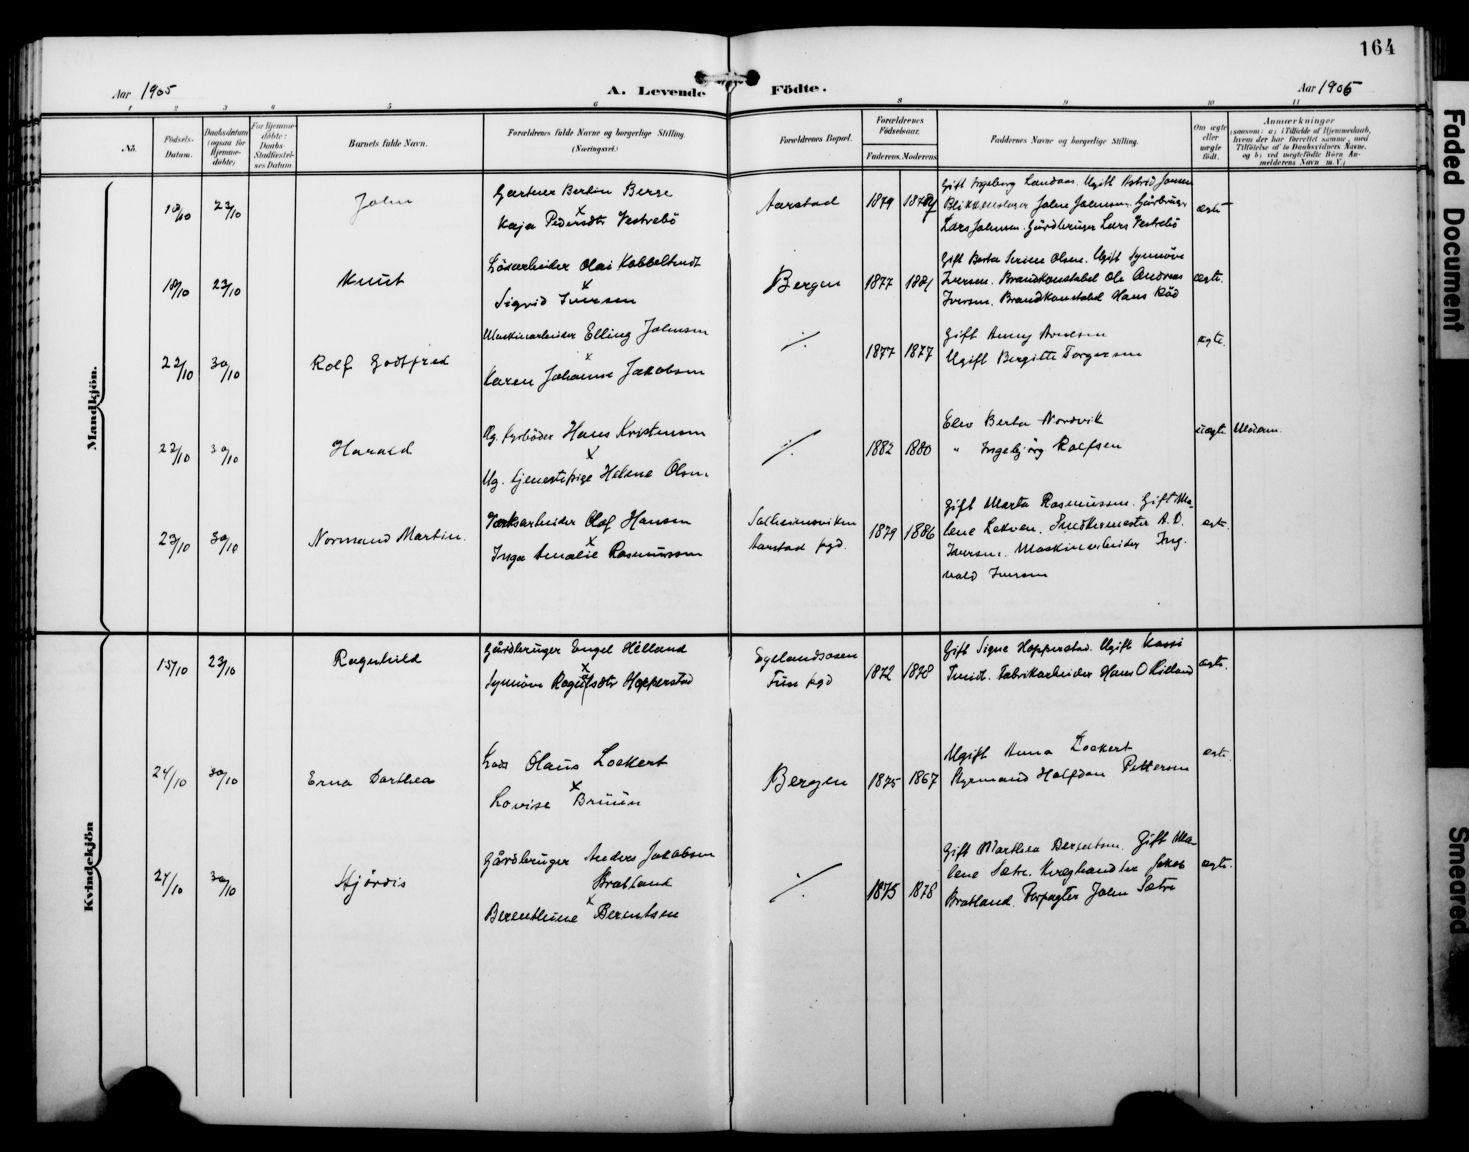 164
Aar 1905
A. Levende Födte.
Aar 1905
1 2 3 4 5 6 8 9 10 11
No.
Födsels-Datum.
Daabsdatum (ogsaa for Hjemme-döbte)
For Hjemme-döbte: Daabs-Stadfæstel-ses Datum.
Barnets fulde Navn.
Forældrenes fulde Navne og borgerlige Stilling. (Næringsvei.)
Forældrenes Bopæl.
Forældrenes Födselsaar.
Faderens. Moderens.
Faddernes Navne og borgerlige Stilling.
Om ægte eller uægte födt.
Anmærkninger
Mandkjön.
18/10 23/10 John
Gartner Bertin Berge
x
Kaja Pedersdtr Vestrebö
Aarstad 1879
Gift Ingeborg Landaas. Ugift Astrid Jonsen
Blikkenslager John Johnsen. Gårdbruger
Lars Johnsen. Gårdbruger Lars Vestrebö
ægte
18/10 23/10 Knut
Lösarbeider Olai Kobbeltvedt
x
Sigvid Iversen
Bergen 1877 1881
Gift Berta Serine Olsen. Ugift Synnöve
Iversen. Brandkonstabel Ole Andreas
Iversen. Brandkonstabel Hans Röd
ægte.
22/10 30/10 Rolf Godtfred
Maskinarbeider Elling Johnsen
x
Karen Johanne Jakobsen
./. 1877 1877
Gift Anny Arnesen
Ugift Bergitte Torgersen
ægte.
22/10 30/10 Harald
Ug. fyrböder Hans Kristensen
x
Ug. tjenestepige Helene Olsen
./. 1882 1880
Elev Berta Nordvik
" Ingebjörg Rolfsen
uægte Moderen.
23/10 30/10 Normand Martin.
Værksarbeider Olaf Hansen
x
Inga Amalie Rasmussen
Solheimsviken
Aarstad pgd.
1879 1886
Gift Marta Rasmussen. Gift Ma-
lene Lekven. Snedkermester A. D.
Iversen. Maskinarbeider Ing-
vald Iversen
ægte.
Kvindekjön
15/10 23/10 Ragnhild
Gårdbruger Engel Helland
x
Synnöve Hopperstad
Egelandsosen
Fuse pgd
1872 1878
Gift Signe Hopperstad. Ugift
Fabrikarbeider Hans O Helland
ægte.
24/10 30/10 Erna Dorthea
Lods Olaus Lockert
x
Lovise Bruun
Bergen 1875 1867
Ugift Anna Lockert
Styrmand Halfdan Pettersen
ægte.
27/10 30/10 Hjördis
Gårdbruger Anders Jakobsen
Bratland
x
Berenthine Berentsen
./. 1875 1878
Gift Marthea Berentsen. Gift Ma-
lene Sætre. Kvæghandler Jakob
Bratland. Forpagter John Sætre
ægte.
Faded Document
Smeared